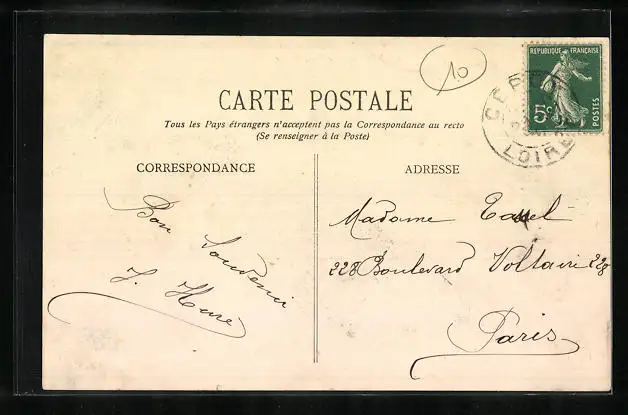 10
RÉPUBLIQUE FRANÇAISE
5c
POSTES
LOIRE
CARTE POSTALE
Tous les Pays étrangers n'acceptent pas la Correspondance au recto
(Se renseigner à la Poste)
CORRESPONDANCE
Bon
Souvenir
ADRESSE
Madame
228 Boulevard Voltaire 228
Paris